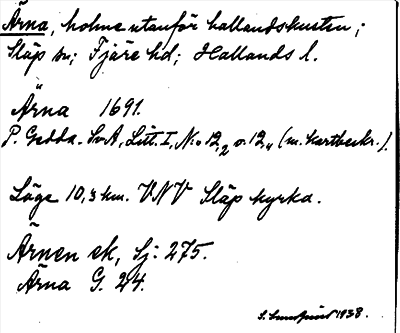 Ärna, holme utanför hallandskusten;
Släp sn; Fjäre hd; Hallands l.
Ärna 1691.
P. Gedda. SvA, Litt. I, N:o 12,2 o. 12,4 (m. kartbeskr.).
Läge 10,3 km. VNV Släp kyrka.
Ärnen ek, Sj: 275.
Ärna G. 24.
1938.